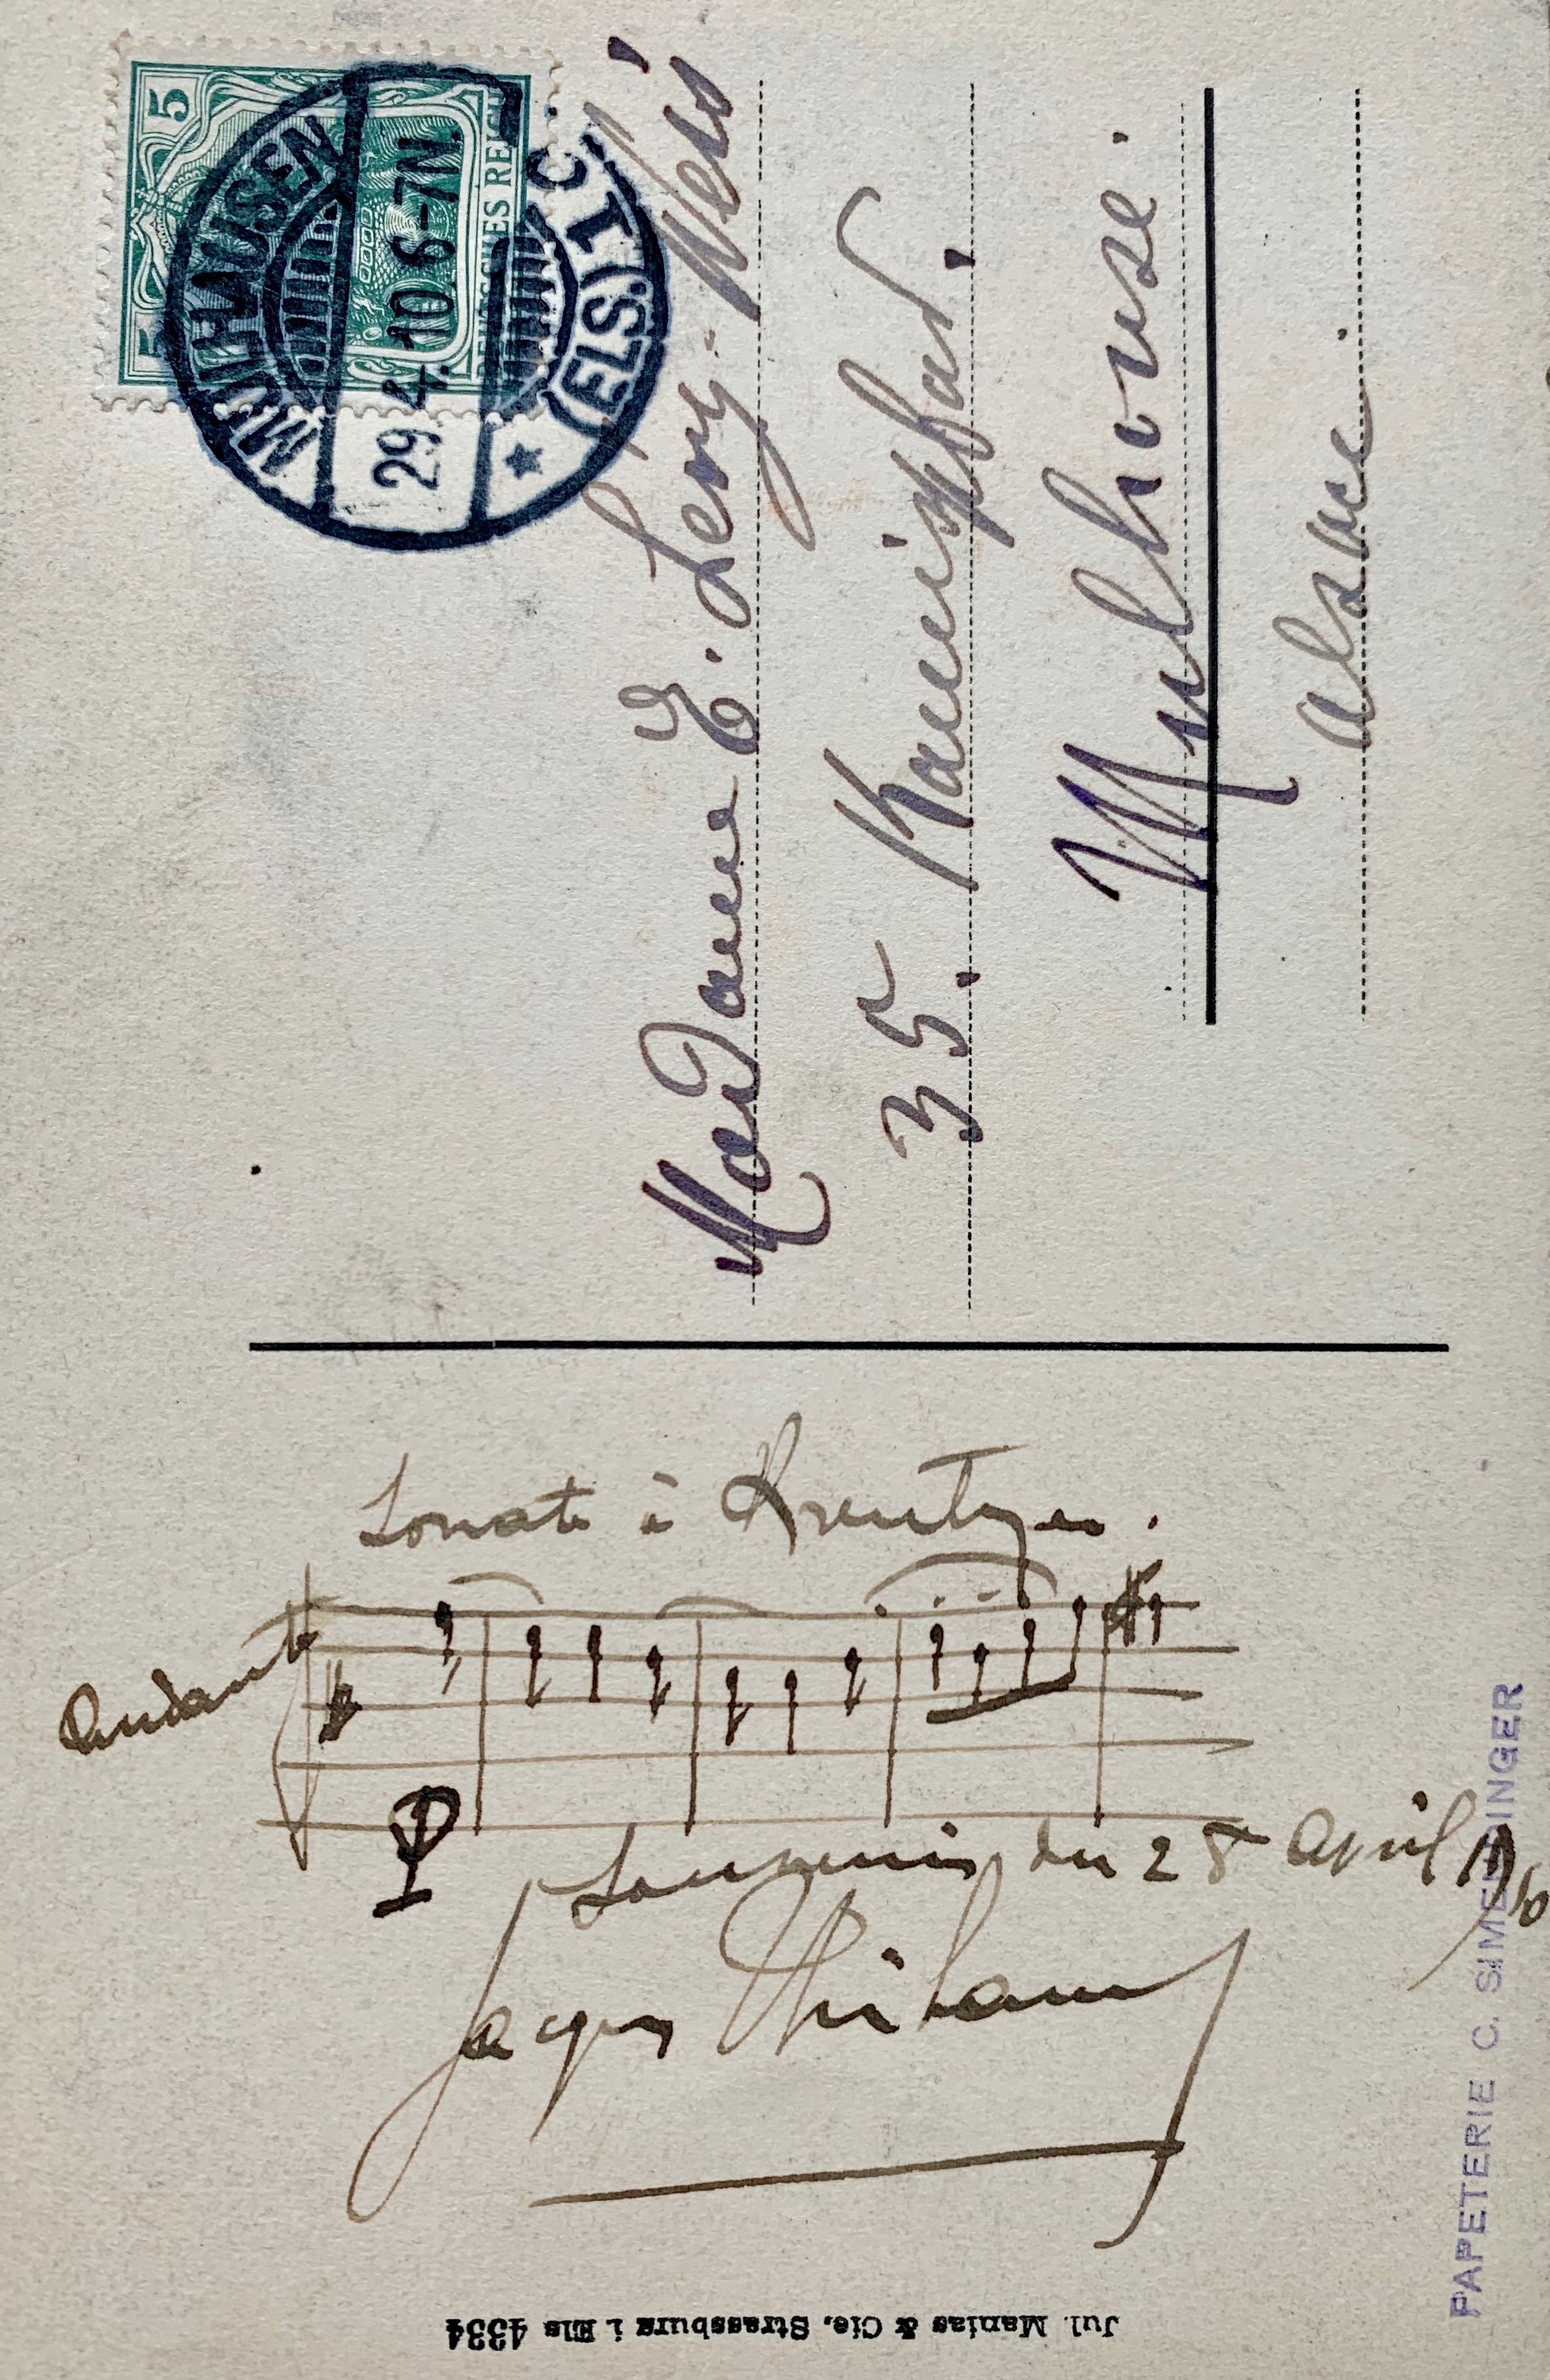 5
5
DEUTSCHES REICH
MÜLHAUSEN
29.4.10 6-7N.
* (ELS.) 1 c.
Madame E. Levy-Weis
35. Kaneipfad.
Mulhouse.
Alsace.
Sonate à Kreutzer.
Andante
P
Souvenir du 28 April 1910
Jacques Thibaud
Jul. Manias & Cie, Strassburg i. Els 4334
PAPETERIE C. SIMENDINGER